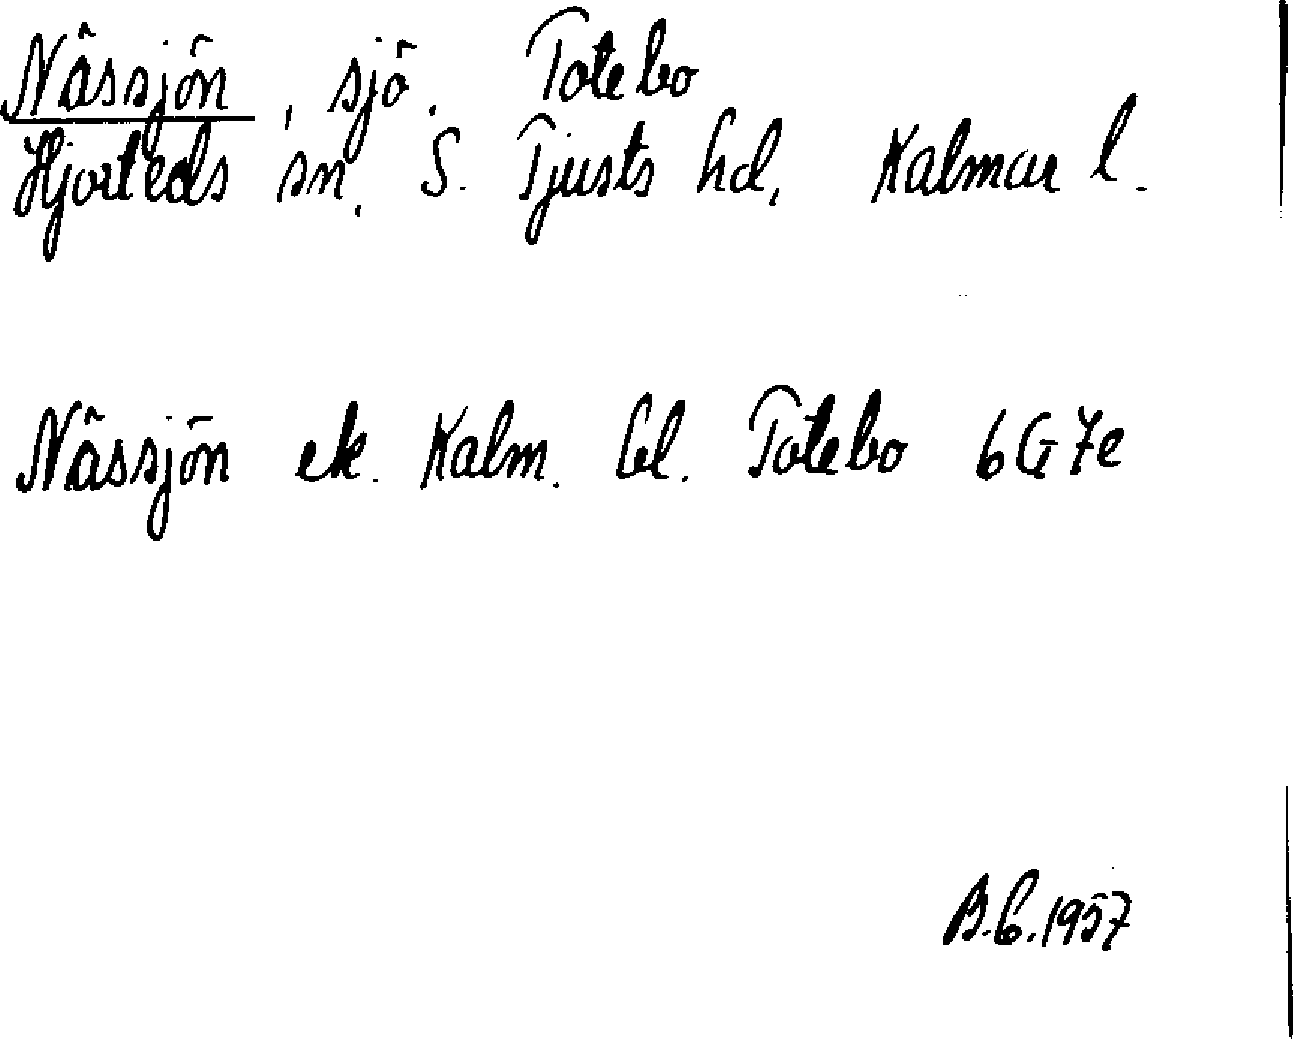 Nässjön, sjö. Totebo
Hjorteds sn, S. Tjusts hd, Kalmar l.
Nässjön ek. Kalm. bl. Totebo 6G7e
B.b.1957